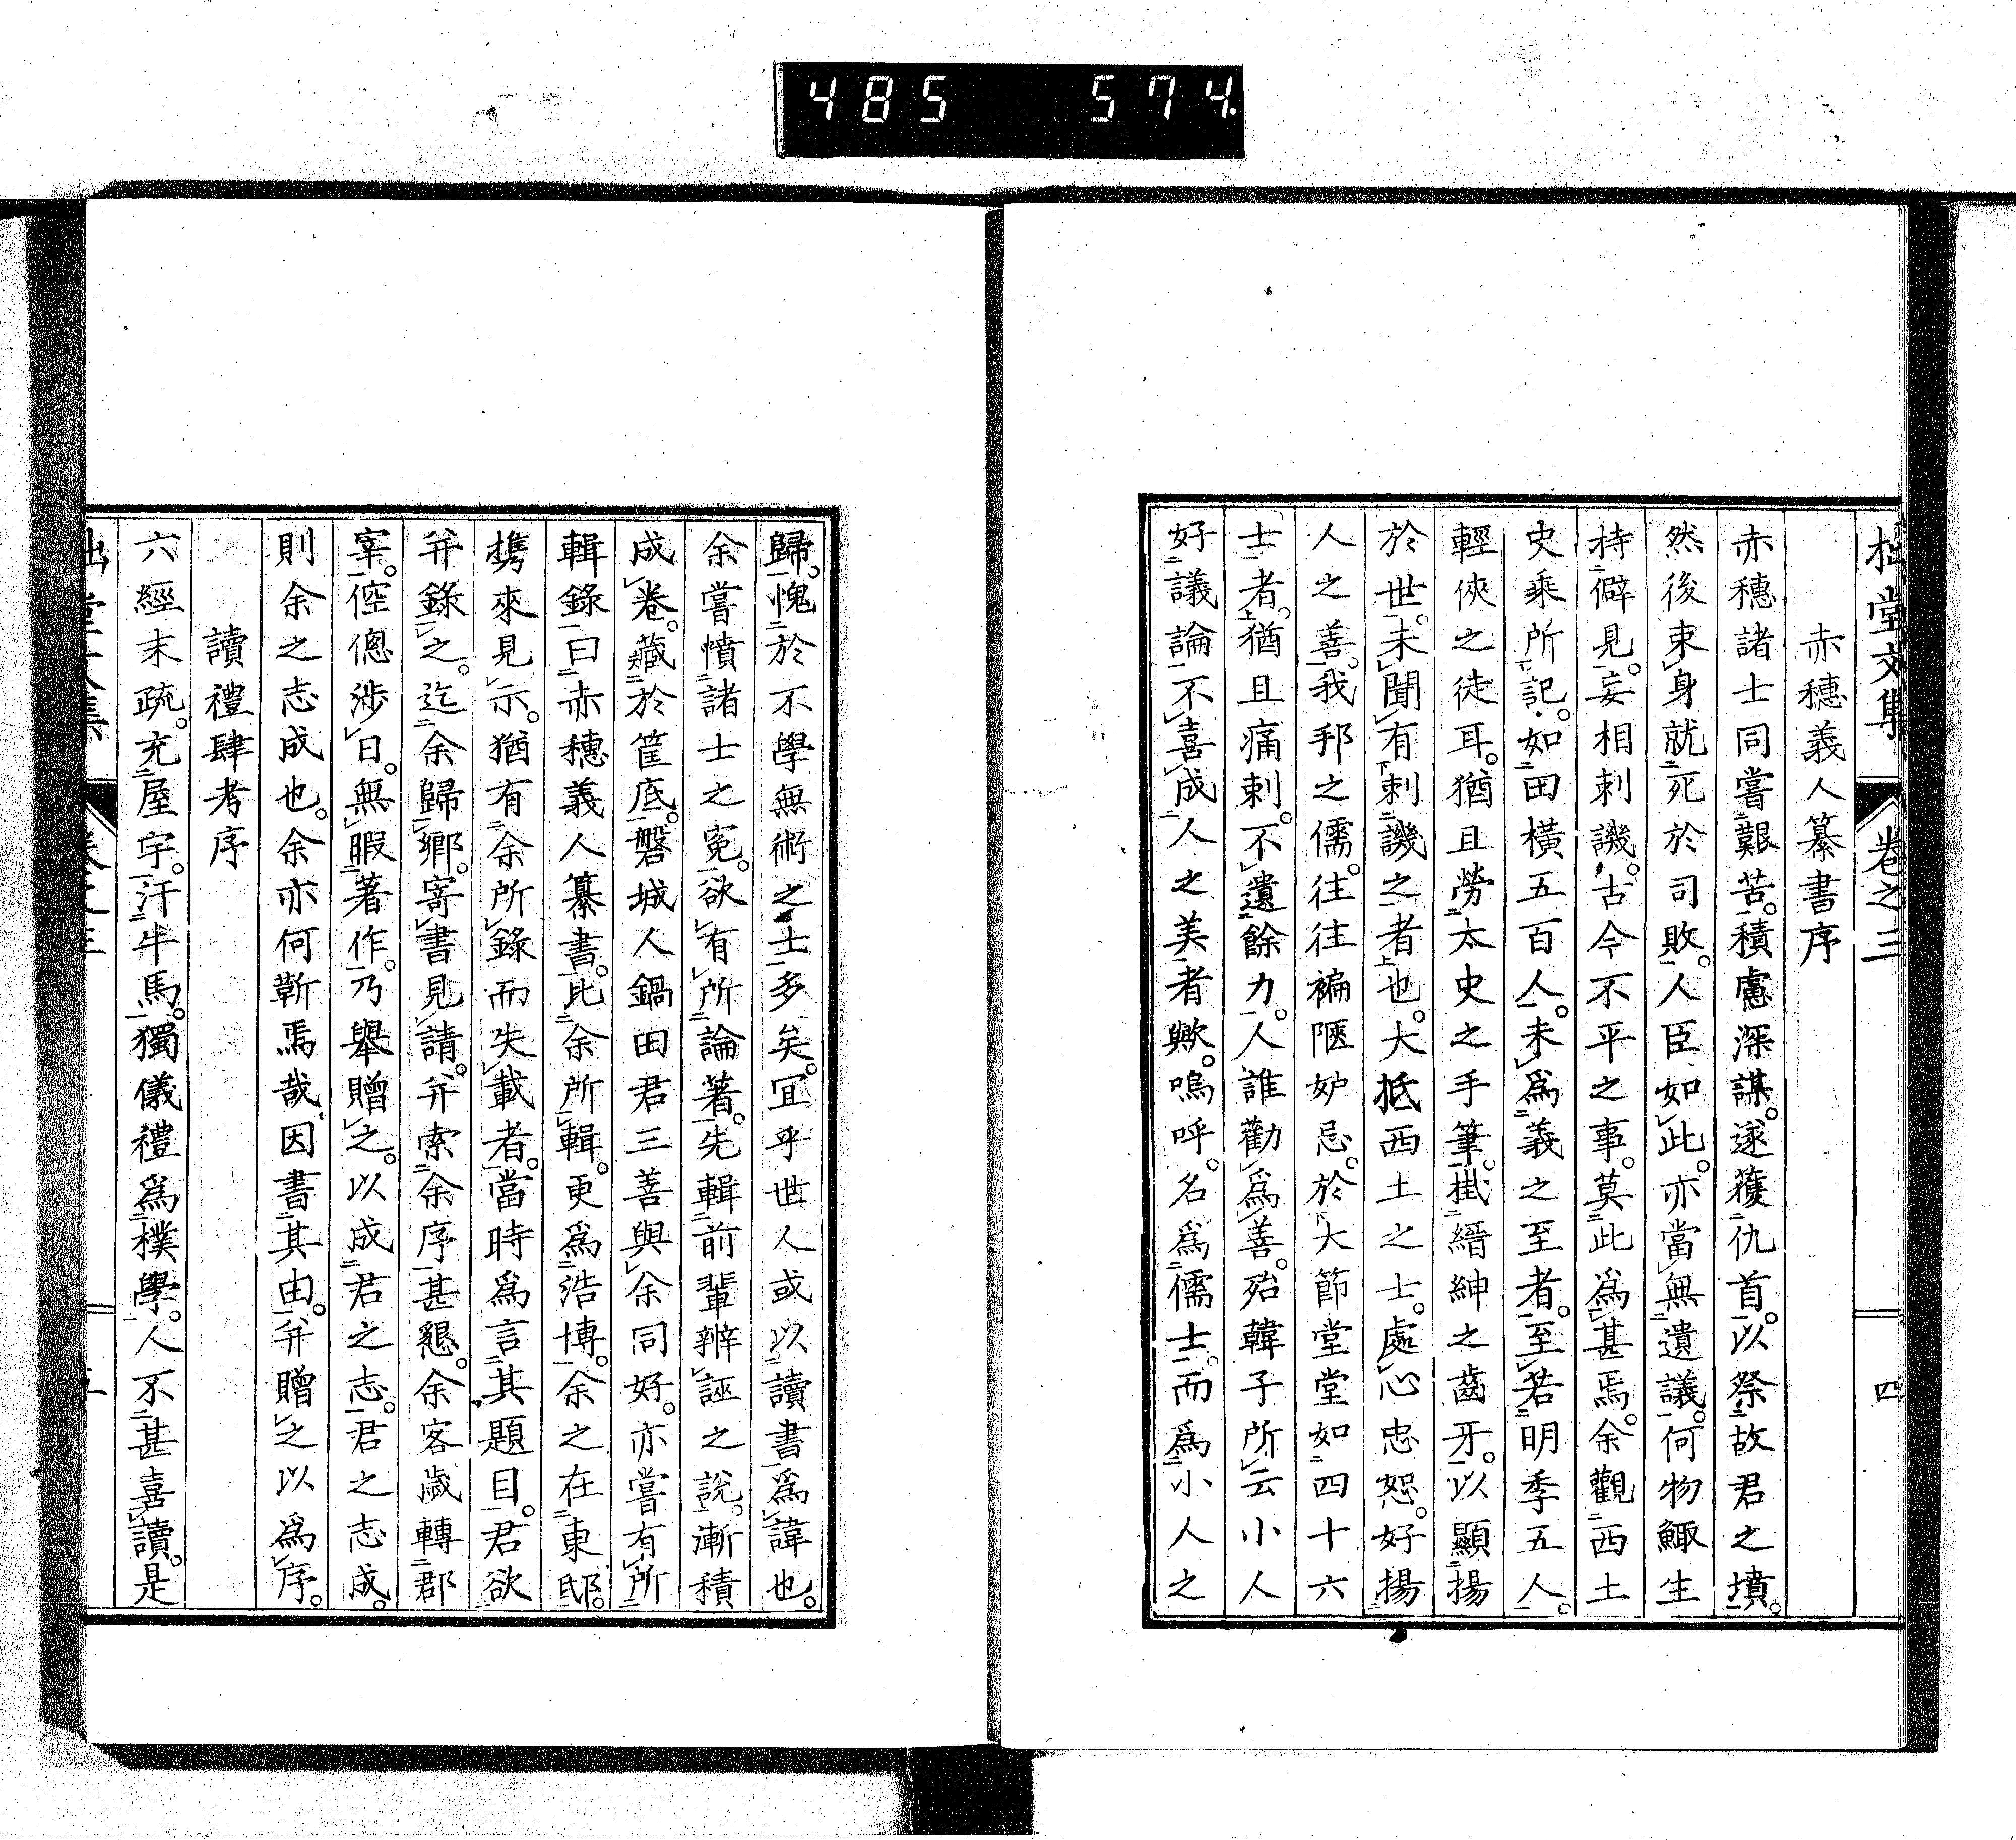 485 574
拙堂文集 卷之三 四
赤穗義人纂書序
赤穗諸士同嘗艱苦。積慮深謀。遂獲仇首。以祭故君之墳。
然後束身就死於司敗。人臣如此。亦當無遺議。何物鯫生
持僻見。妄相刺譏。古今不平之事。莫此爲甚焉。余觀西土
史乘所記。如田橫五百人。未爲義之至者。至若明季五人。
輕俠之徒耳。猶且勞太史之手筆。掛縉紳之齒牙。以顯揚
於世。未聞有刺譏之者也。大抵西土之士。處心忠恕。好揚
人之善。我邦之儒。往往褊陋妒忌。於大節堂堂如四十六
士者。猶且痛刺。不遺餘力。人誰勸爲善。殆韓子所云小人
好議論。不喜成人之美者歟。嗚呼。名爲儒士。而爲小人之
歸。愧於不學無術之士多矣。宜乎世人或以讀書爲諱也。
余嘗憤諸士之冤。欲有所論著。先輯前輩辨誣之說。漸積
成卷。藏於筐底。磐城人鍋田君三善與余同好。亦嘗有所
輯錄。曰赤穗義人纂書。比余所輯。更爲浩博。余之在東邸。
携來見示。猶有余所錄而失載者。當時爲言其題目。君欲
并錄之。迄余歸鄉。寄書見請。并索余序甚懇。余客歲轉郡
宰。倥傯涉日。無暇著作。乃舉贈之。以成君之志。君之志成。
則余之志成也。余亦何靳焉哉。因書其由。并贈之以爲序。
讀禮肆考序
六經末疏。充屋宇。汗牛馬。獨儀禮爲樸學。人不甚喜讀。是